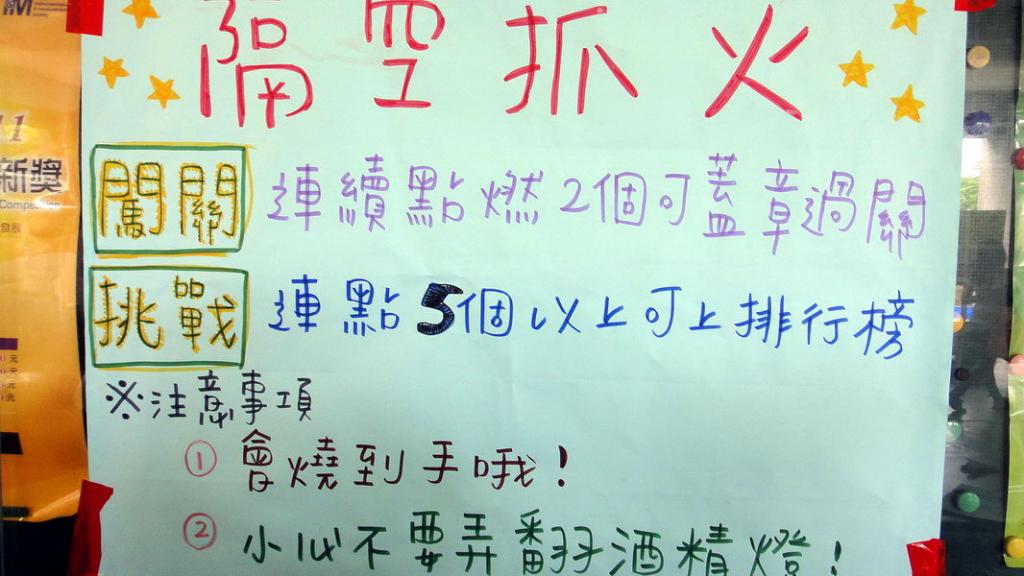 隔空抓火
闖關 連續點燃2個可蓋章過關
挑戰 連點5個以上可上排行榜
※注意事項
① 會燒到手哦!
② 小心不要弄翻酒精燈!
11
新獎
發展